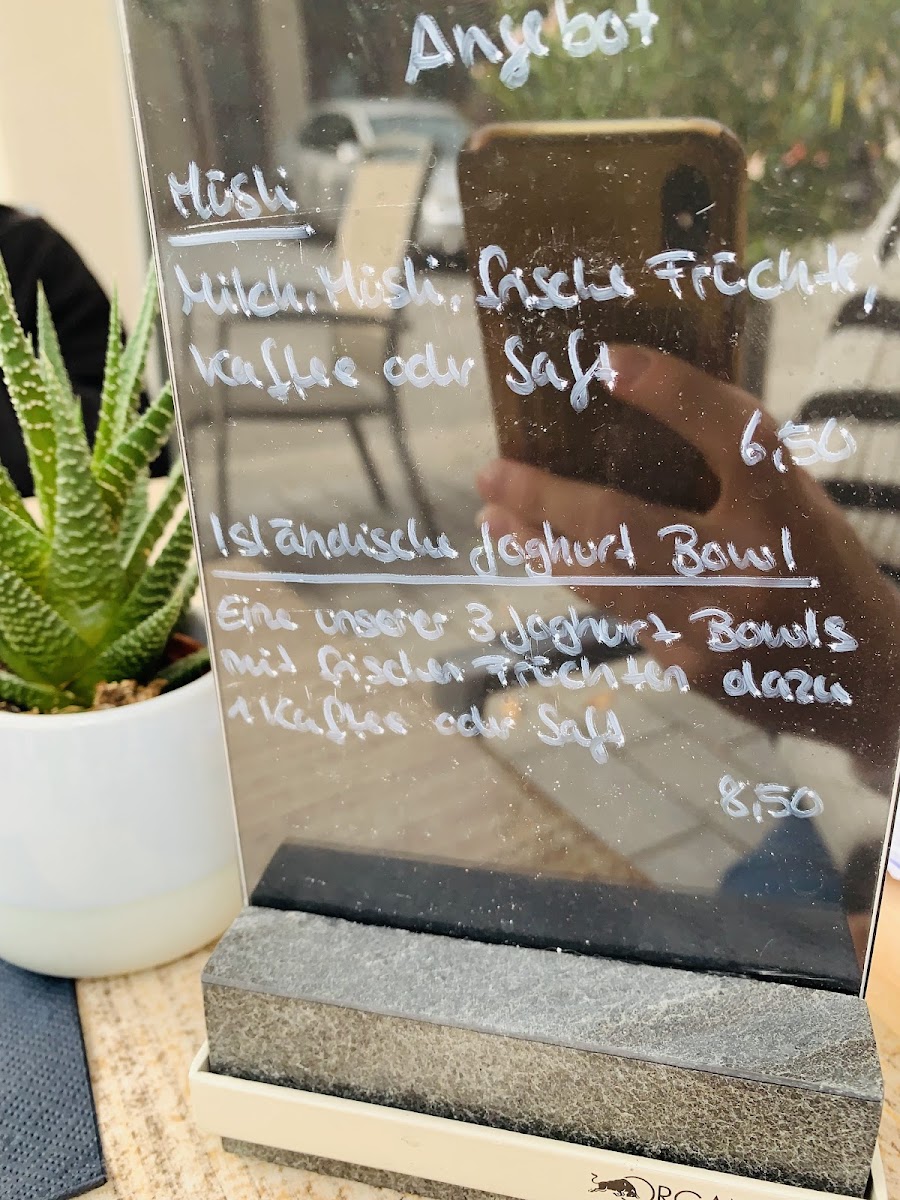 Angebot
Müsli
Milch, Müsli, frische Früchte,
Kaffee oder Saft
6,50
Isländische Joghurt Bowl
Eine unserer 3 Joghurt Bowls
mit frischen Früchten dazu
1 Kaffee oder Saft
8,50